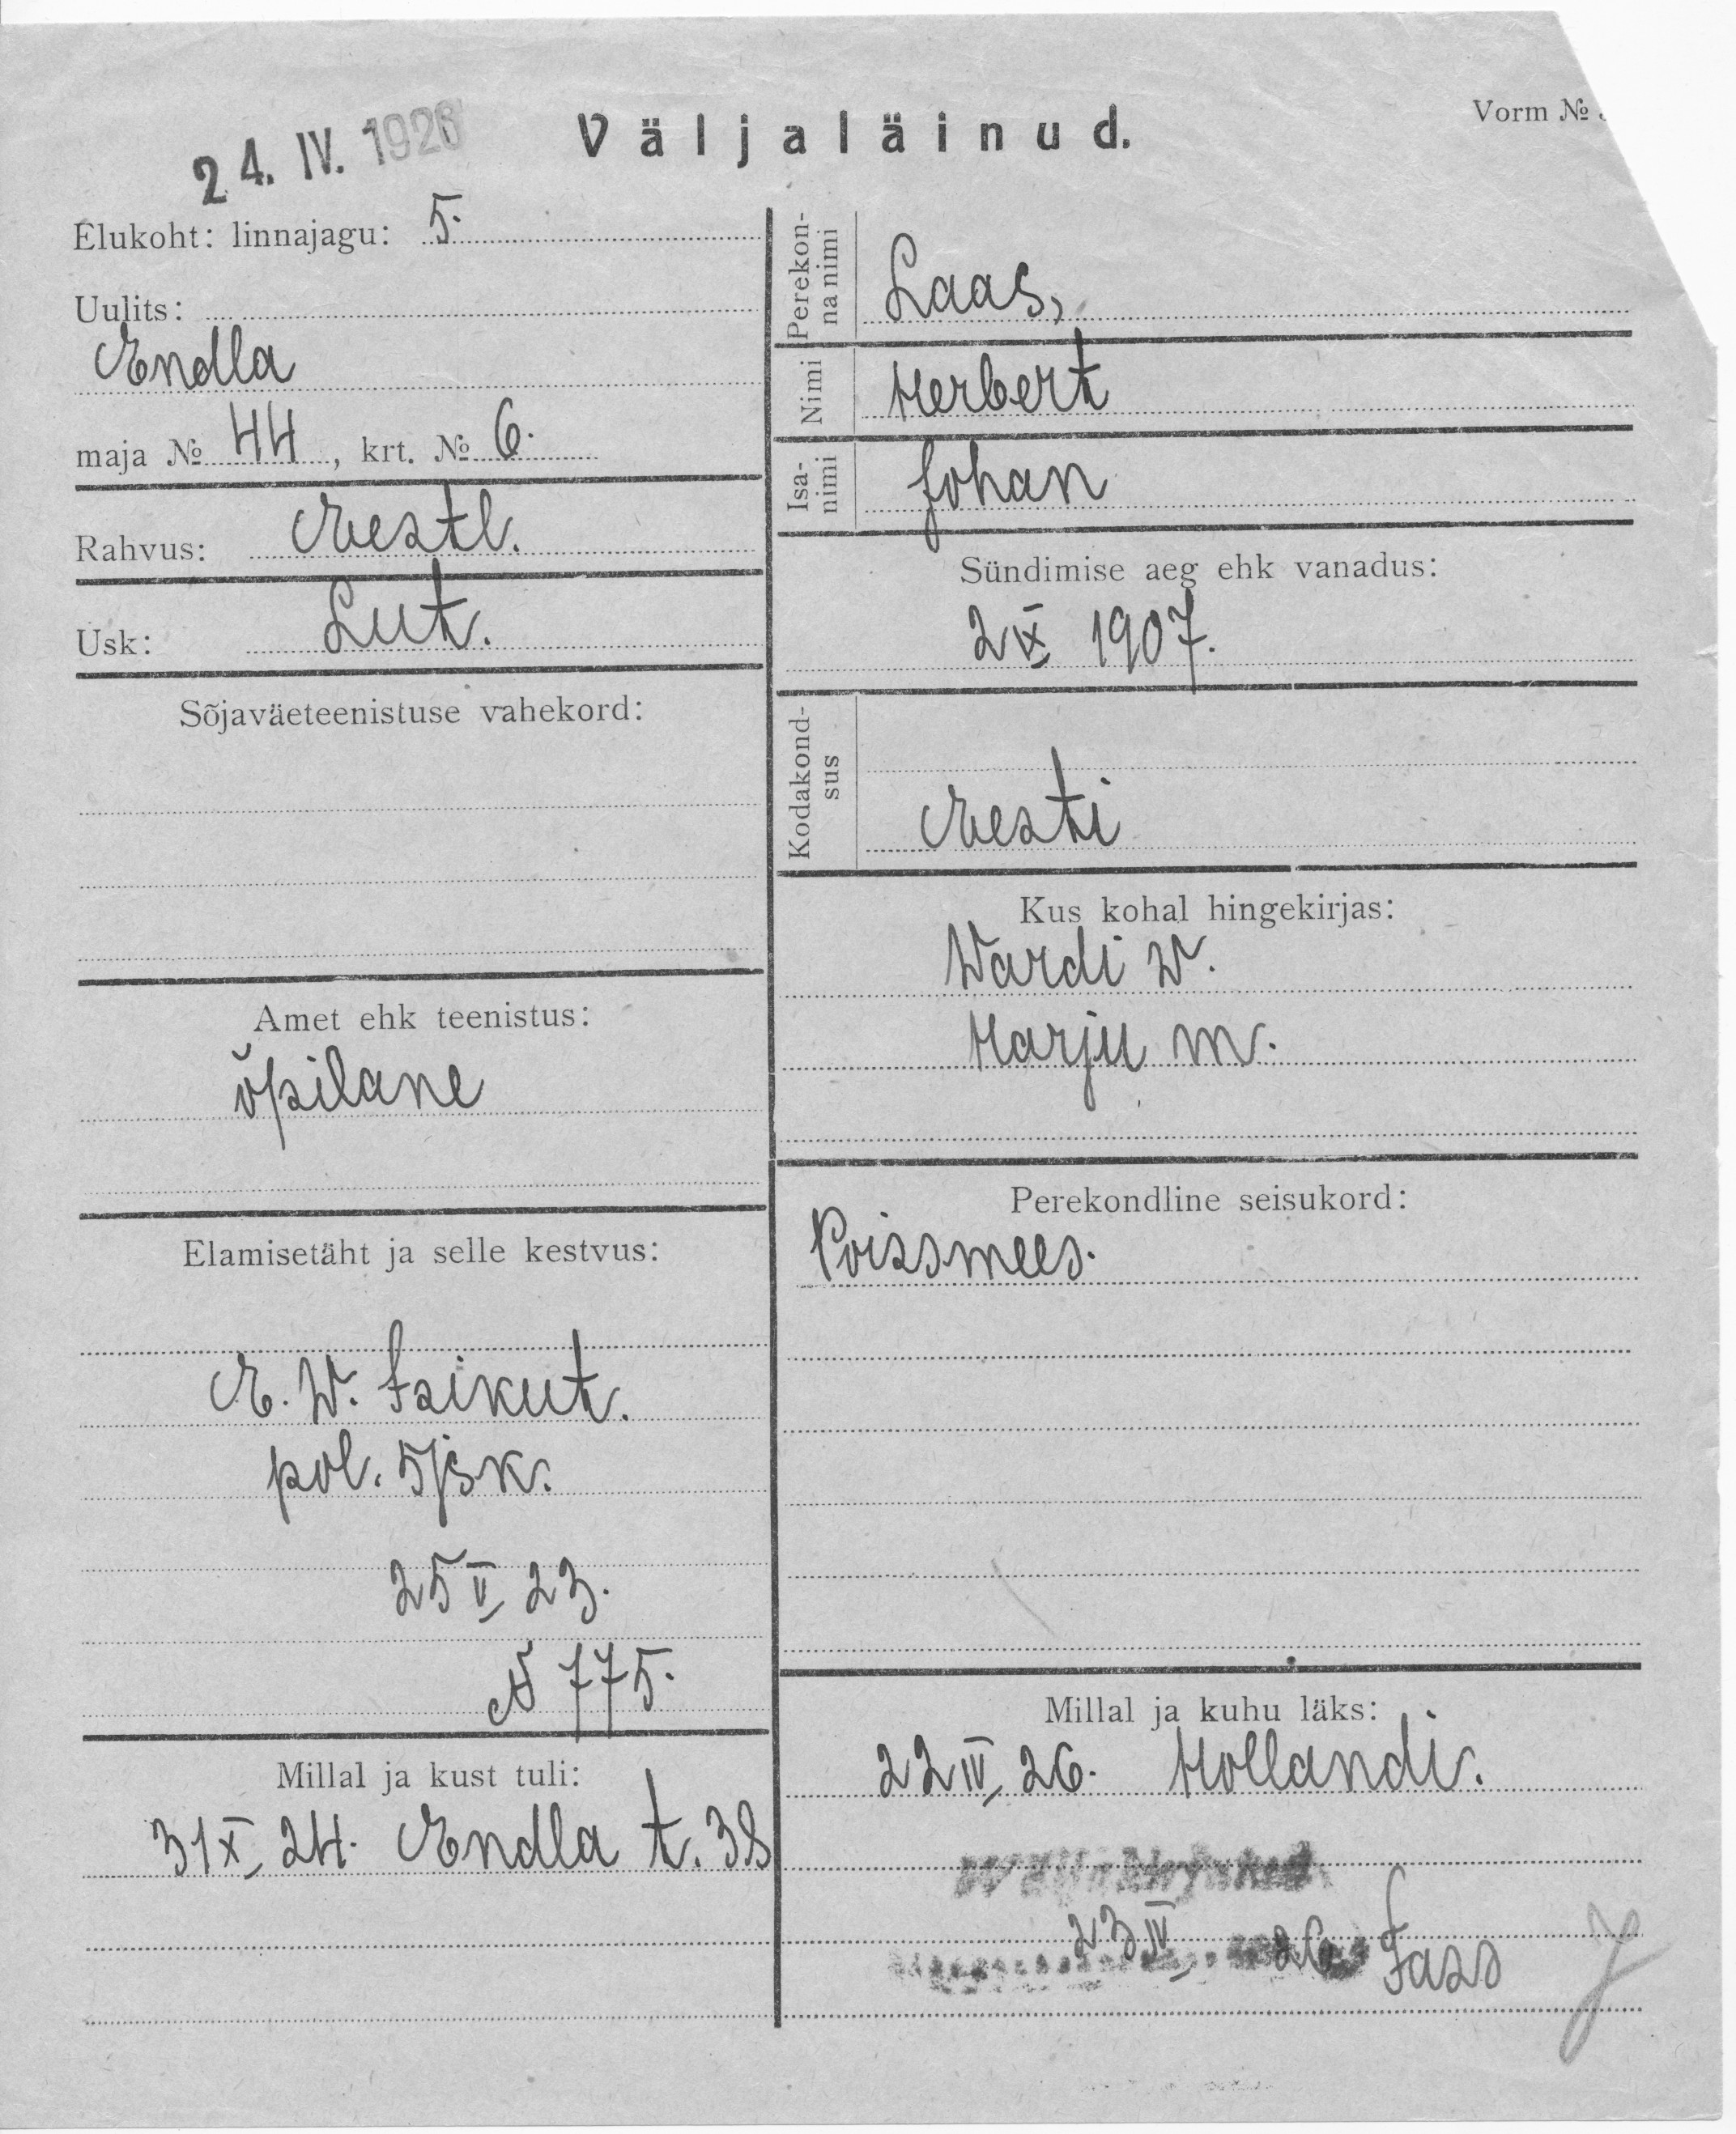 24. IV. 1926
Väljaläinud.
Vorm №
Elukoht: linnajagu: 5.
Uulits:
Endla
maja № 44, krt. № 6.
Rahvus: Eestl.
Usk: Lut.
Sõjaväeteenistuse vahekord:
Amet ehk teenistus:
õpilane
Elamisetäht ja selle kestvus:
E. W. Isikut.
pol. 5 jsk.
25 V 23.
№ 775.
Millal ja kust tuli:
31 X 24. Endla t. 38
Perekonna nimi
Laas,
Nimi
Herbert
Isa-nimi
Johan
Sündimise aeg ehk vanadus:
2 IX 1907.
Kodakond-sus
Eesti
Kus kohal hingekirjas:
Wardi w.
Harju m.
Perekondline seisukord:
Poissmees.
Millal ja kuhu läks:
22 IV 26. Hollandi.
23 IV 26